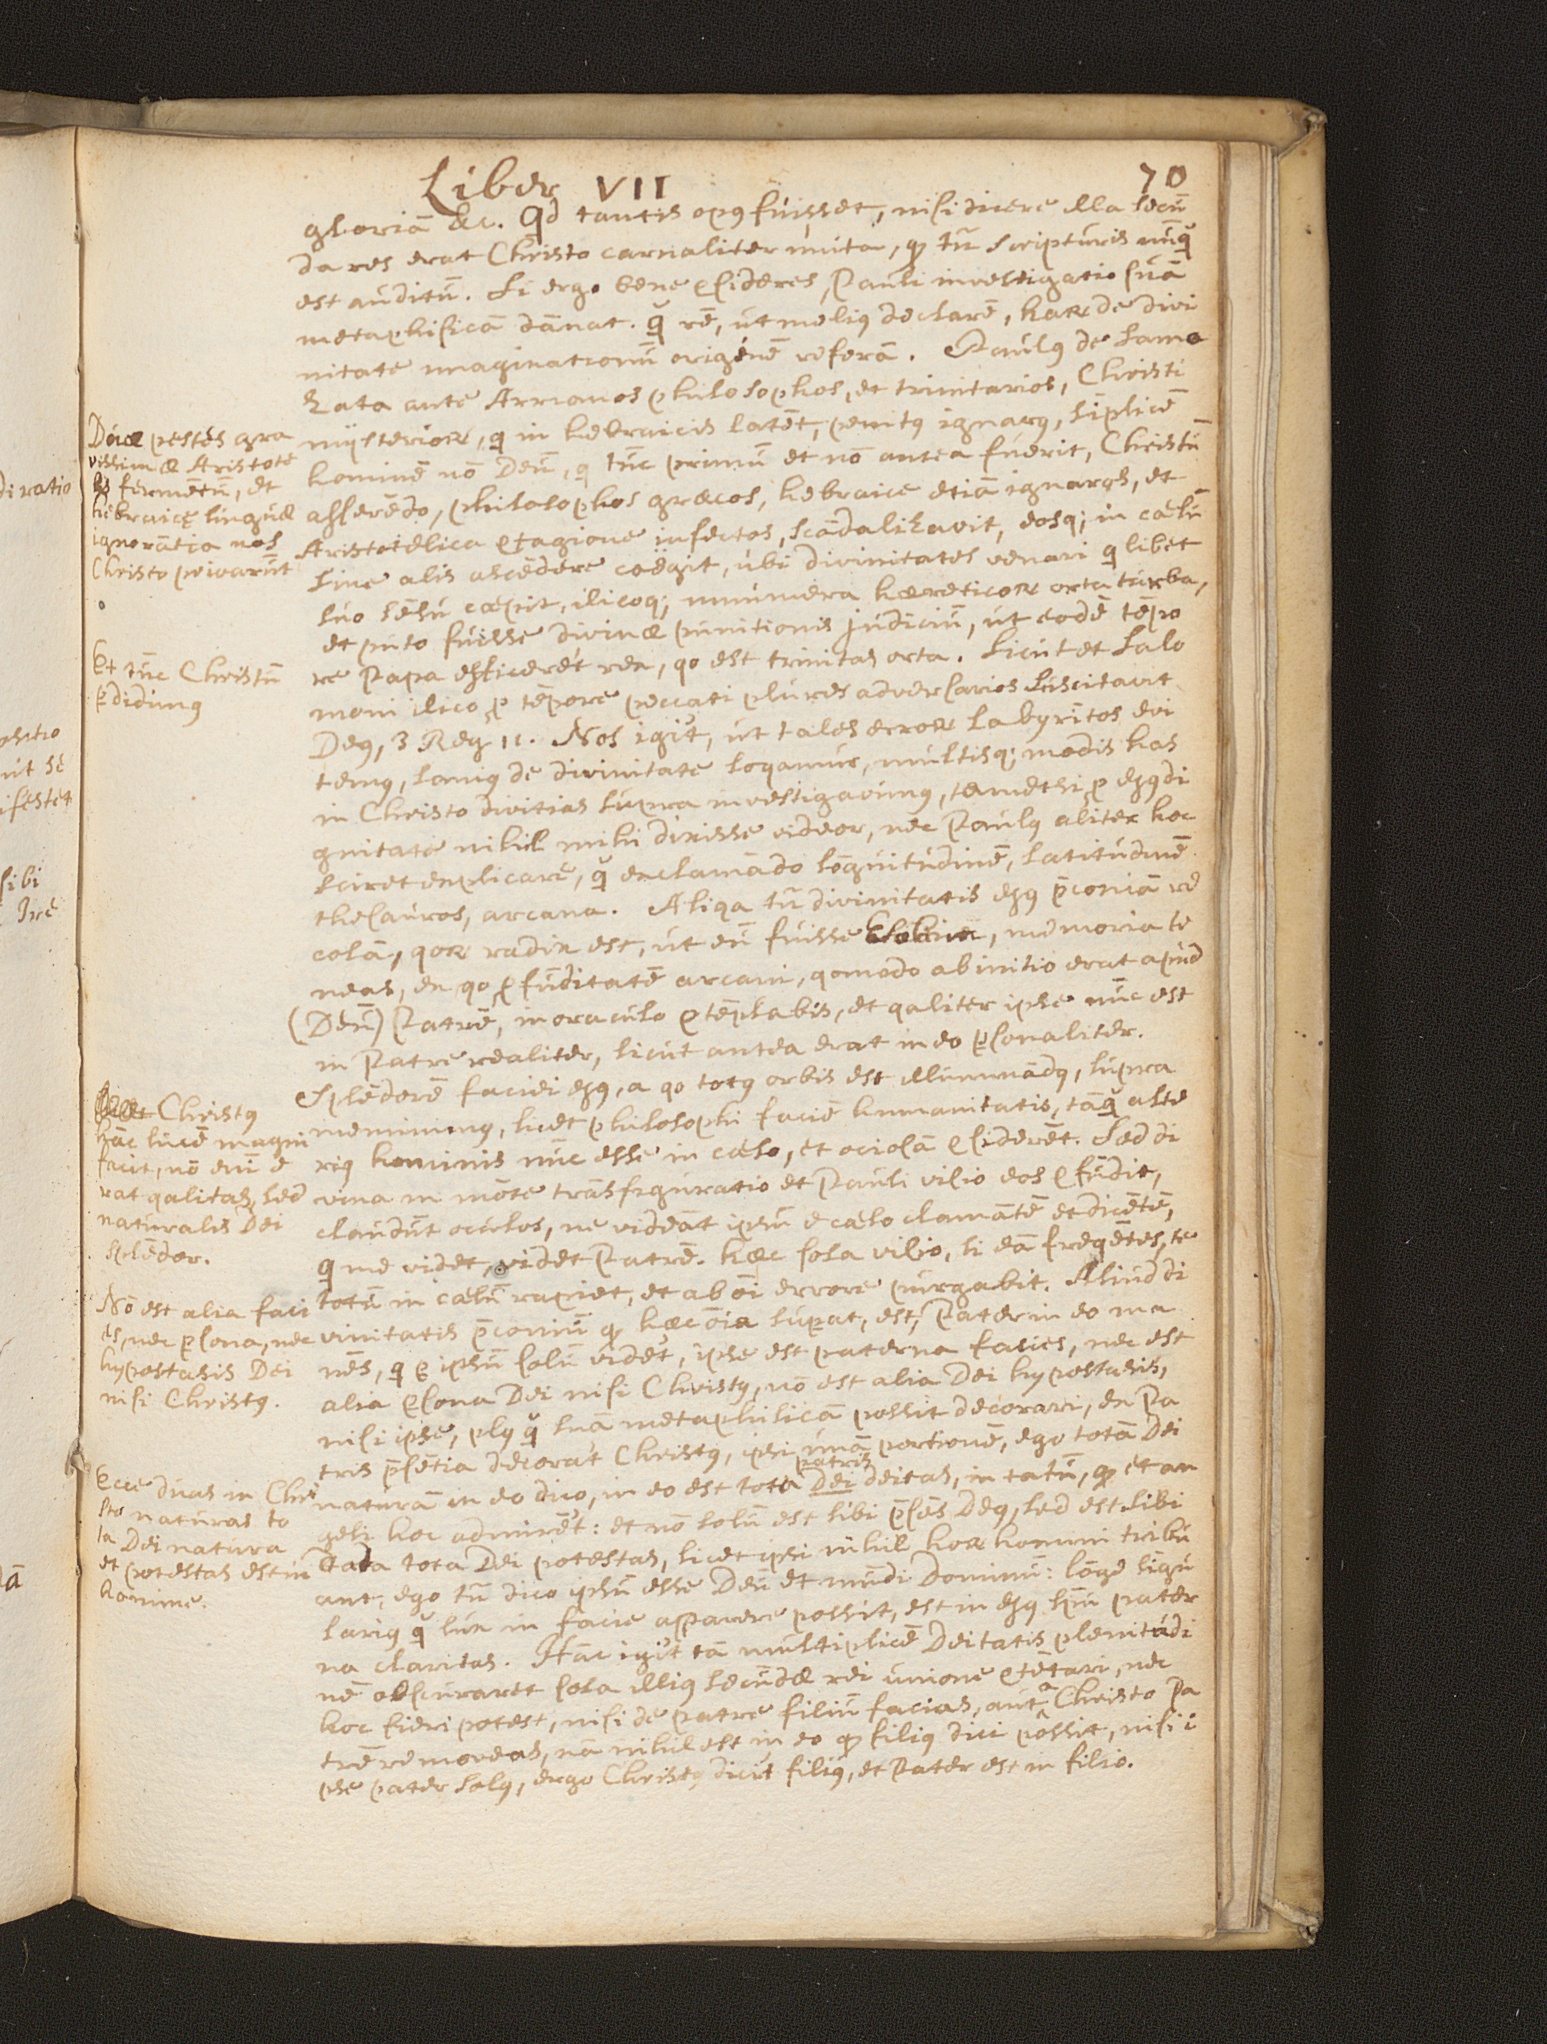 Liber VII 70
gloriā &c. Qd tantis opꝰ fuisset, nisi dicere illa secū
da res erat Christo carnaliter unita, qꝫ tn̄ scripturis nūq̄
est auditū. Si ergo bene ꝯsideres, Pauli investigatio suā
metaphisicā dānat. q̄ rē, ut meliꝰ declarē, haꝝ de divi
nitate imaginationū originē referā. Paulꝰ de Samo
zata ante Arrianos philosophos, et trinitarios, Christi
mÿsterioꝝ, q in hebraicis latēt, penitꝰ ignarꝰ, sīplicē
hominē nō Deū, q tūc primū et nō antea fuerit, Christū
asserēdo, philosophos græcos, hebraice etiā ignaros, et
Aristotelica ꝯtagione infectos, scādalizavit, eosq; in cælū
sine alis ascēdere coëgit, ubi divinitates venari q libet
suo sēsu cæpit, ilicoq; innumera hæreticoꝝ orta turba,
et puto fuisse divinæ punitionis judiciū, ut eodē tēpo
re Papa efficeret rex, qo est trinitas orta. Sicut et Salo
moni ilico ꝓ tēpore peccati plures adversarios suscitavit
Deꝰ, 3 Reg 11. Nos igit, ut tales erroꝝ labyrītos evi
temꝰ, saniꝰ de divinitate loqamur, multisq; modis has
in Christo divitias supra investigavimꝰ, tametsi ꝓ ejꝰ di
gnitate nihil mihi dixisse videor, nec Paulꝰ aliter hoc
sciret explicare, q̄ exclamādo lōgitudinē, latitudinē
thesauros, arcana. Aliqa tn̄ divinitatis ejꝰ p̄conia re
colā, qoꝝ radix est, ut eū fuisse Elohim, memoria te
neas, ex qo ꝓfūditatē arcani, qomodo ab initio erat apud
(Deū) Patrē, in oraculo ꝯtēplabis, et qaliter ipse nūc est
in Patre realiter, sicut antea erat in eo ꝑsonaliter.
Splēdorē faciei ejꝰ, a qo totꝰ orbis est illuminādꝰ, supra
meminimꝰ, licet philosophi faciē humanitatis, tāq̄ alte
riꝰ hominis nūc esse in cælo, et ociosā ꝯsiderēt. Sed di
vina in mōte trāsfiguratio et Pauli visio eos ꝯfūdit,
claudūt oculos, ne videāt ipsū e cælo clamātē et dicētē,
q me videt, videt Patrē. hæc sola visio, si eā freqētes, te
totū in cælū rapiet, et ab oī errore purgabit. Aliud di
vinitatis p̄coniū qꝫ hæc oīa supat, est, Pater in eo ma
nēs, q ꝑ ipsū solū videt, ipse est paterna facies, nec est
alia ꝑsona Dei nisi Christꝰ, nō est alia Dei hypostasis,
nisi ipse, plꝰ q̄ suā metaphisicā possit decorari, ex Pa
tris p̄sētia decorat Christꝰ, ipsi unā portionē, ego totā Dei
naturā in eo dico, in eo est tota Dei patris deitas, in tātū, qꝫ et an
geli hoc admirēt: et nō solū est sibi p̄sēs Deꝰ, sed est sibi
data tota Dei potestas, licet ipsi nihil hoꝝ homini tribu
ant, ego tn̄ dico ipsū esse Deū et mūdi Dominū: lōge sīgu
lariꝰ q̄ lux in facie apparere possit, est in ejꝰ spū pater
na claritas. Hāc igit tā multiplicē Deitatis plenitudi
nē obscuraret sola illiꝰ secūdæ rei unione ꝯtētari, nec
hoc fieri potest, nisi de patre filiū facias, aut a Christo Pa
trē removeas, nā nihil est in eo qꝫ filiꝰ dici possit, nisi i
pse pater solꝰ, ergo Christꝰ dicit filiꝰ, et Pater est in filio.
Duæ pestes gra
vissimæ Aristote
lis fermētū, et
hebraicę linguæ
ignorātia nos
Christo privarūt
Et tūc Christū
ꝑdidimꝰ
Christꝰ
hāc lucē magni
facit, nō eni e
rat qalitas, sed
naturalis Dei
splēdor.
Nō est alia faci
es, nec ꝑsona, nec
hypostasis Dei
nisi Christꝰ.
Ecce duas in Chri
sto naturas to
ta Dei natura
et potestas est in
homine.
di ratio
ut se
ifestet
sibi